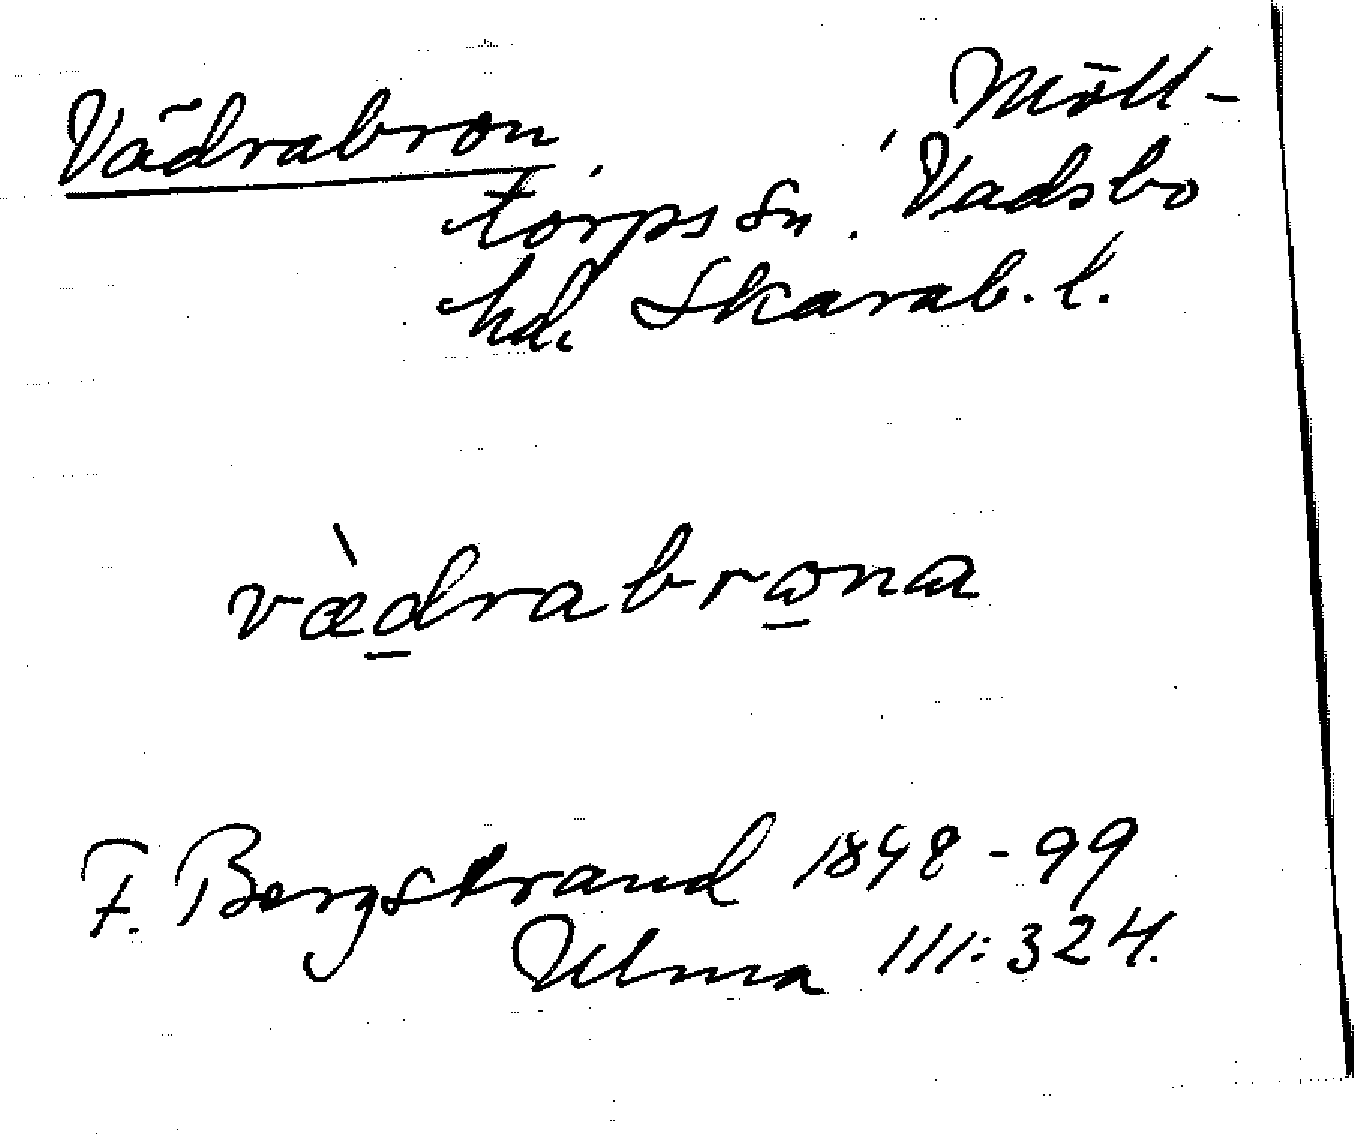 Vädrabron, Möll-
torps sn. Vadsbo
hd. Skarab. l.
vædrabrona
F. Bergstrand 1898-99
Ulma 111:324.